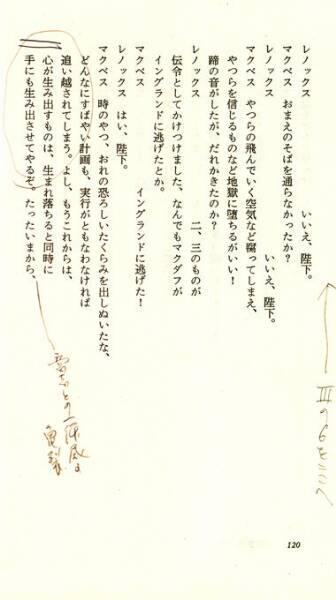 レノックス　いいえ、陛下。
マクベス　おまえのそばを通らなかったか？
レノックス　いいえ、陛下。
マクベス　やつらの飛んでいく空気など腐ってしまえ、
やつらを信じるものなど地獄に堕ちるがいい！
蹄の音がしたが、だれかきたのか？
レノックス　二、三のものが
伝令としてかけつけました、なんでもマクダフが
イングランドに逃げたとか。
マクベス　イングランドに逃げた！
レノックス　はい、陛下。
マクベス　時のやつ、おれの恐ろしいたくらみを出しぬいたな、
どんなにすばやい計画も、実行がともなわなければ
追い越されてしまう。よし、もうこれからは、
心が生み出すものは、生まれ落ちると同時に
手にも生み出させてやるぞ。たったいまから、
Ⅲの6をここへ
亀裂
120